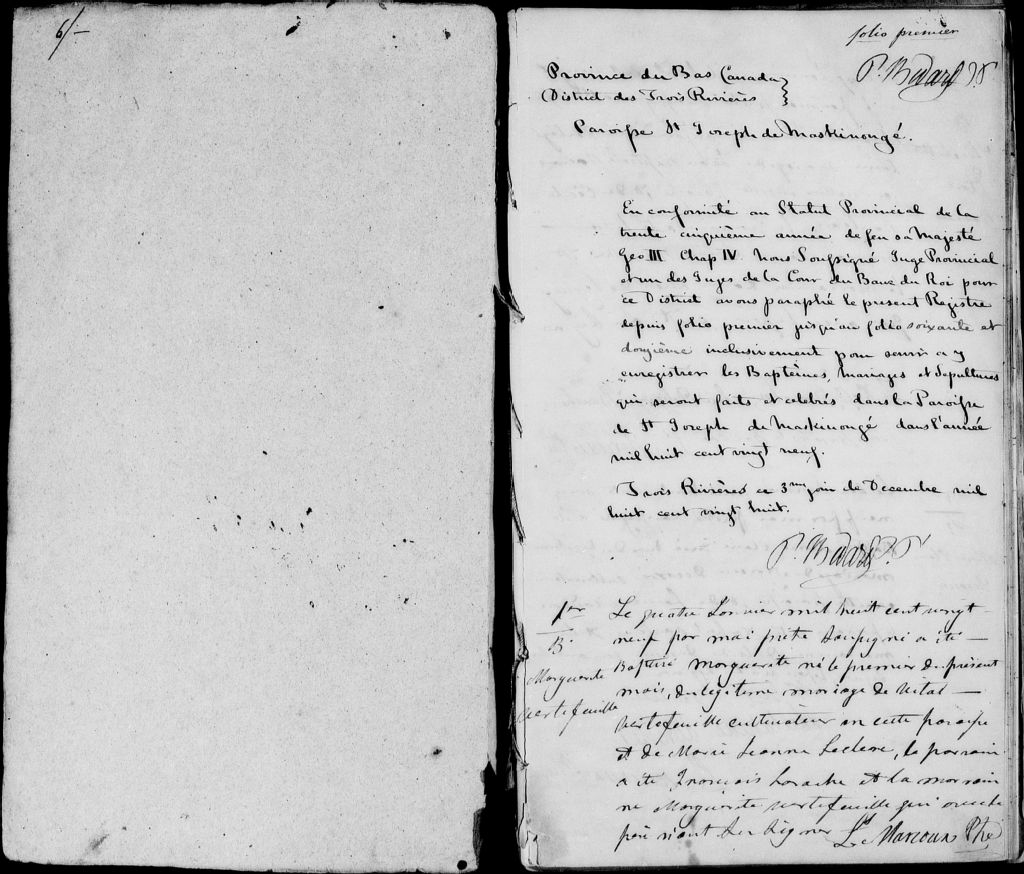 6/-
folio premier
P. Bedard
Province du Bas Canada
District des Trois Rivières
Paroisse St Joseph de Maskinongé.
En conformité au Statut Provincial de la
trente cinquième année de feu sa Majesté
Geo III Chap IV. Nous Soussigné Juge Provincial
et un des Juges de la Cour du Banc du Roi pour
ce District avons paraphé le present Registre
depuis folio premier jusqu'au folio soixante et
douzième inclusivement pour servir a y
enregistrer les Baptèmes, mariages et Sepultures
qui seront faits et celebrés dans la Paroisse
de St Joseph de Maskinongé dans l'année
mil huit cent vingt neuf.
Trois Rivières ce 3me join de Decembre mil
huit cent vingt huit.
P. Bedard
1er
B.
Marguerite
vertefeuille
Le quatre Janvier mil huit cent vingt
neuf par moi prêtre soussigné a été
Baptisé Marguerite né le premier du présent
mois, du légitime mariage de Vital
vertefeuille cultivateur en cette paroisse
et de Marie Jeanne Leclerc, le parrain
a été François et la marrain
ne Marguerite vertefeuille qui avec le
pere n'ont su signer L. Marcoux Ptre